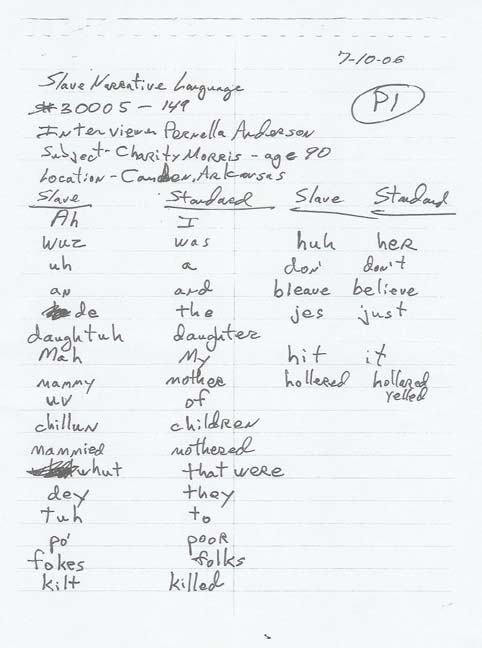 7-10-06
Slave Narrative Language
#30005-149
P1
Interviewer Pernella Anderson
Subject-Charity Morris - age 90
Location-Camden, Arkansas
Slave Standard Slave Standard
Ah I
wuz was huh her
uh a don' don't
an and bleave believe
de the jes just
daughtuh daughter
Mah My hit it
mammy mother hollered hollared
yelled
uv of
chillun children
mammied mothered
whut that were
dey they
tuh to
po' poor
fokes folks
kilt killed